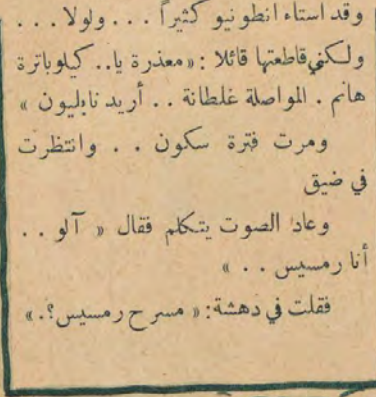 وقد استاء انطونيو كثيراً . . . ولولا . . .
ولكني قاطعتها قائلا : « معذرة يا . . كيلوباترة
هانم . المواصلة غلطانة . . أريد نابليون »
ومرت فترة سكون . . وانتظرت
في ضيق
وعاد الصوت يتكلم فقال « آلو . .
أنا رمسيس . . »
فقلت في دهشة : « مسرح رمسيس ؟ . »